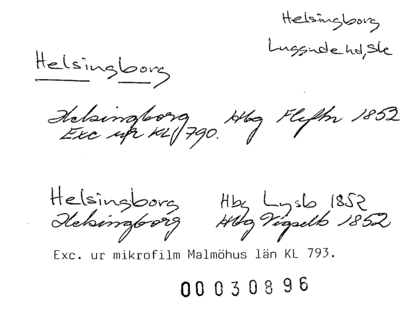 Helsingborg
Luggude hd, Sk
Helsingborg
Helsingborg Hbg Flyttn 1852
Exc ur KL 790.
Helsingborg Hbg Lysb 1852
Helsingborg Hbg Vigselb 1852
Exc. ur mikrofilm Malmöhus län KL 793.
00030896